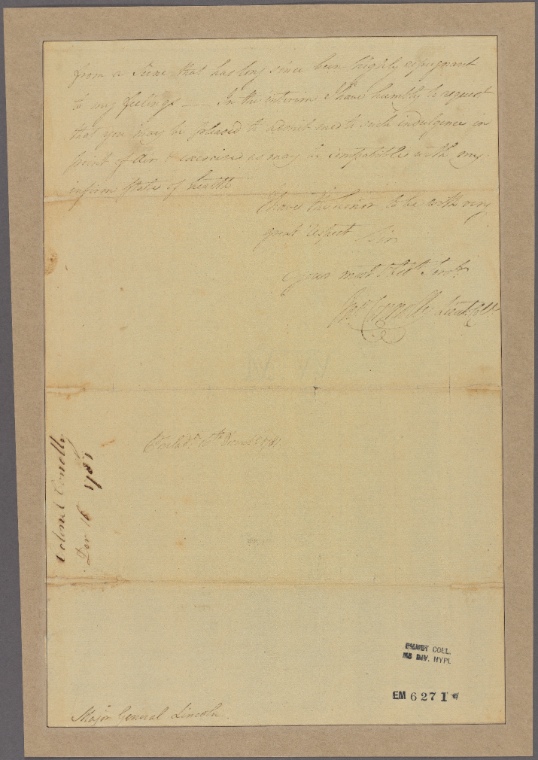 from a scene that has long since been highly repugnant
to my feelings — In the interim I have humbly to request
that you may be pleased to admit me to such indulgence in
point of Air & exercise as may be compatible with my
infirm state of health
I have the honor to be with very
great respect Sir
Your most Obt Servt
Jno Connolly Lieut Col
16th Decembr 1781
Colonel Connolly
Decr 16 1781
EMMET COLL.
MS DIV. NYPL
EM 6271
Major General Lincoln